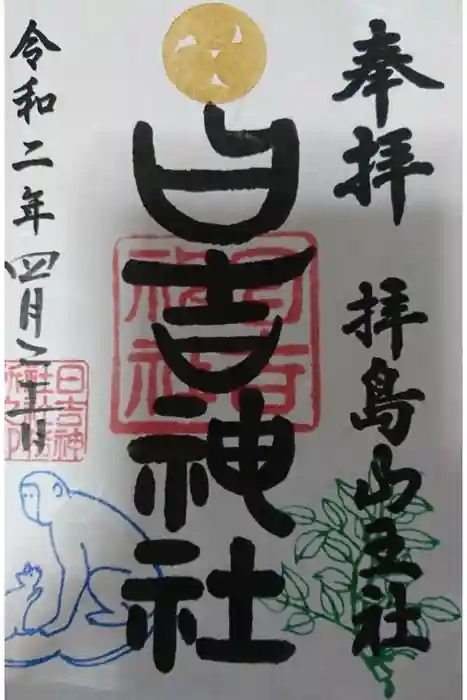 奉拝　拝島山王社
日吉神社
日吉神社
令和二年四月二十一日
日吉神